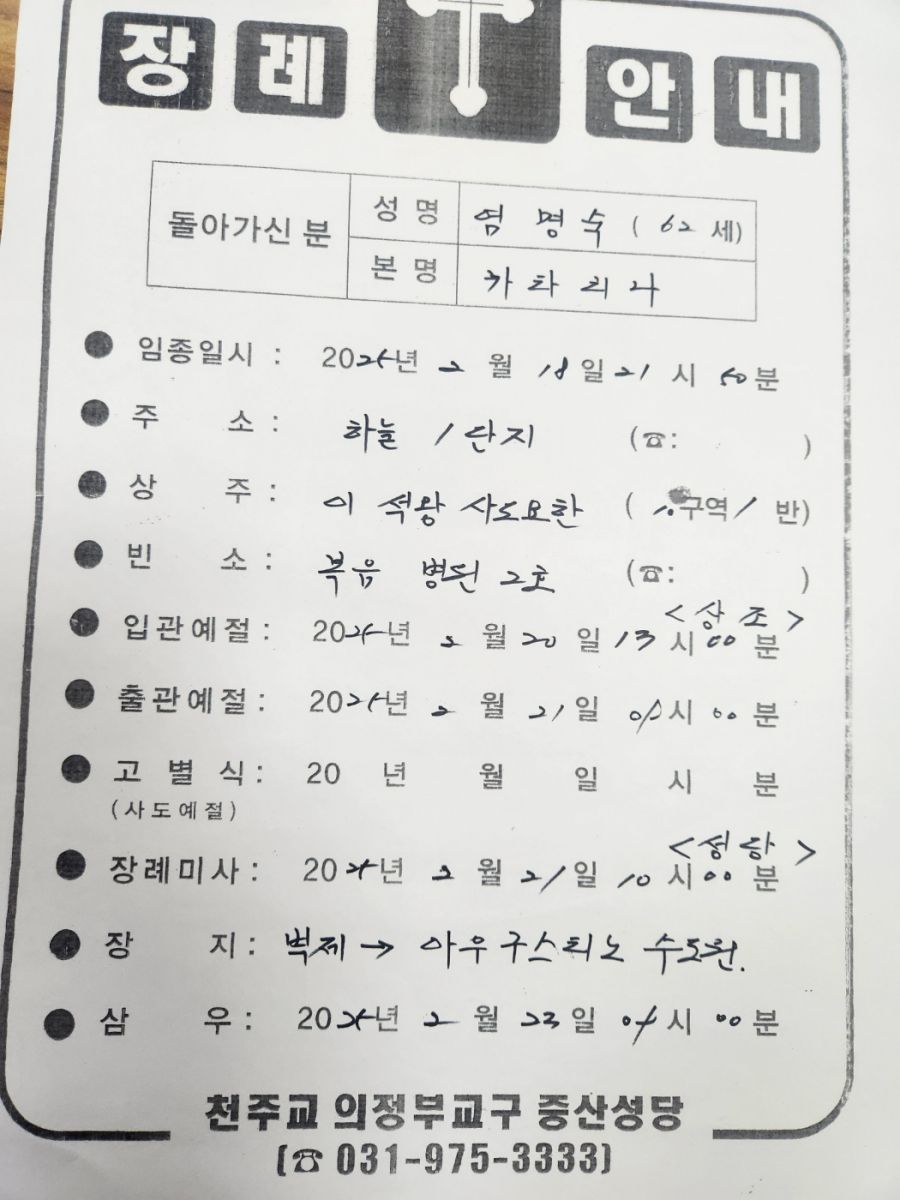 장례 안내
돌아가신 분 성명 염명숙 (62세)
본명 카타리나
임종일시 : 2025년 2월 18일 21시 50분
주소 : 하늘 1단지 (☎: )
상주 : 이석왕 사도요한 (10구역 1반)
빈소 : 복음 병원 2호 (☎: )
<상조>
입관예절 : 2025년 2월 20일 13시 00분
출관예절 : 2025년 2월 21일 시 00분
고별식 : 20 년 월 일 시 분
(사도예절)
<성당>
장례미사 : 2025년 2월 21일 10시 00분
장지 : 벽제 → 아우구스티노 수도원.
삼우 : 2025년 2월 23일 시 00분
천주교 의정부교구 중산성당
(☎ 031-975-3333)